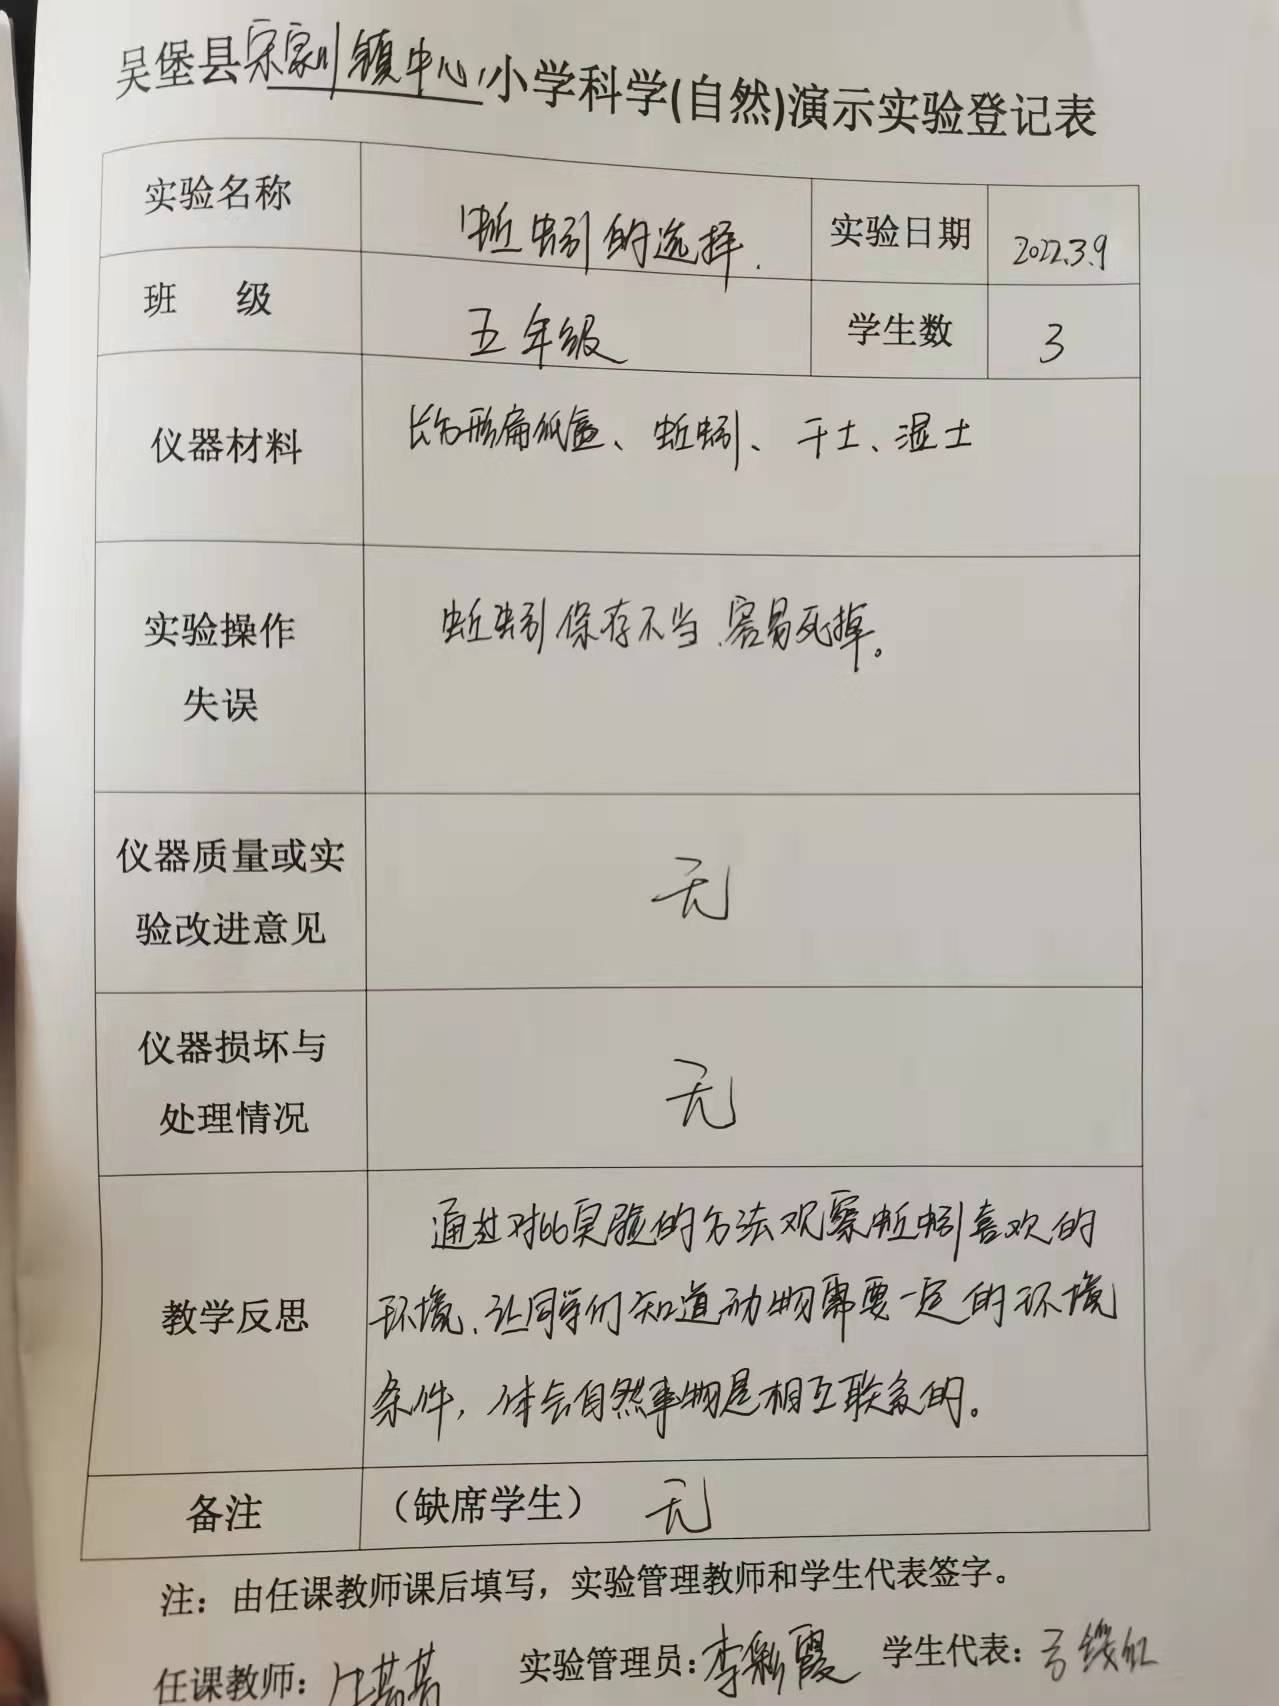 吴堡县宋家川镇中心小学科学(自然)演示实验登记表
实验名称 蚯蚓的选择. 实验日期 2022.3.9
班 级 五年级 学生数 3
仪器材料 长方形扁纸盒、蚯蚓、干土、湿土
实验操作
失误
蚯蚓保存不当、容易死掉。
仪器质量或实
验改进意见
无
仪器损坏与
处理情况
无
教学反思
通过对比实验的方法观察蚯蚓喜欢的
环境、让同学们知道动物需要一定的环境
条件，体会自然事物是相互联系的。
备注 （缺席学生） 无
注：由任课教师课后填写，实验管理教师和学生代表签字。
任课教师： 实验管理员：李彩霞 学生代表：